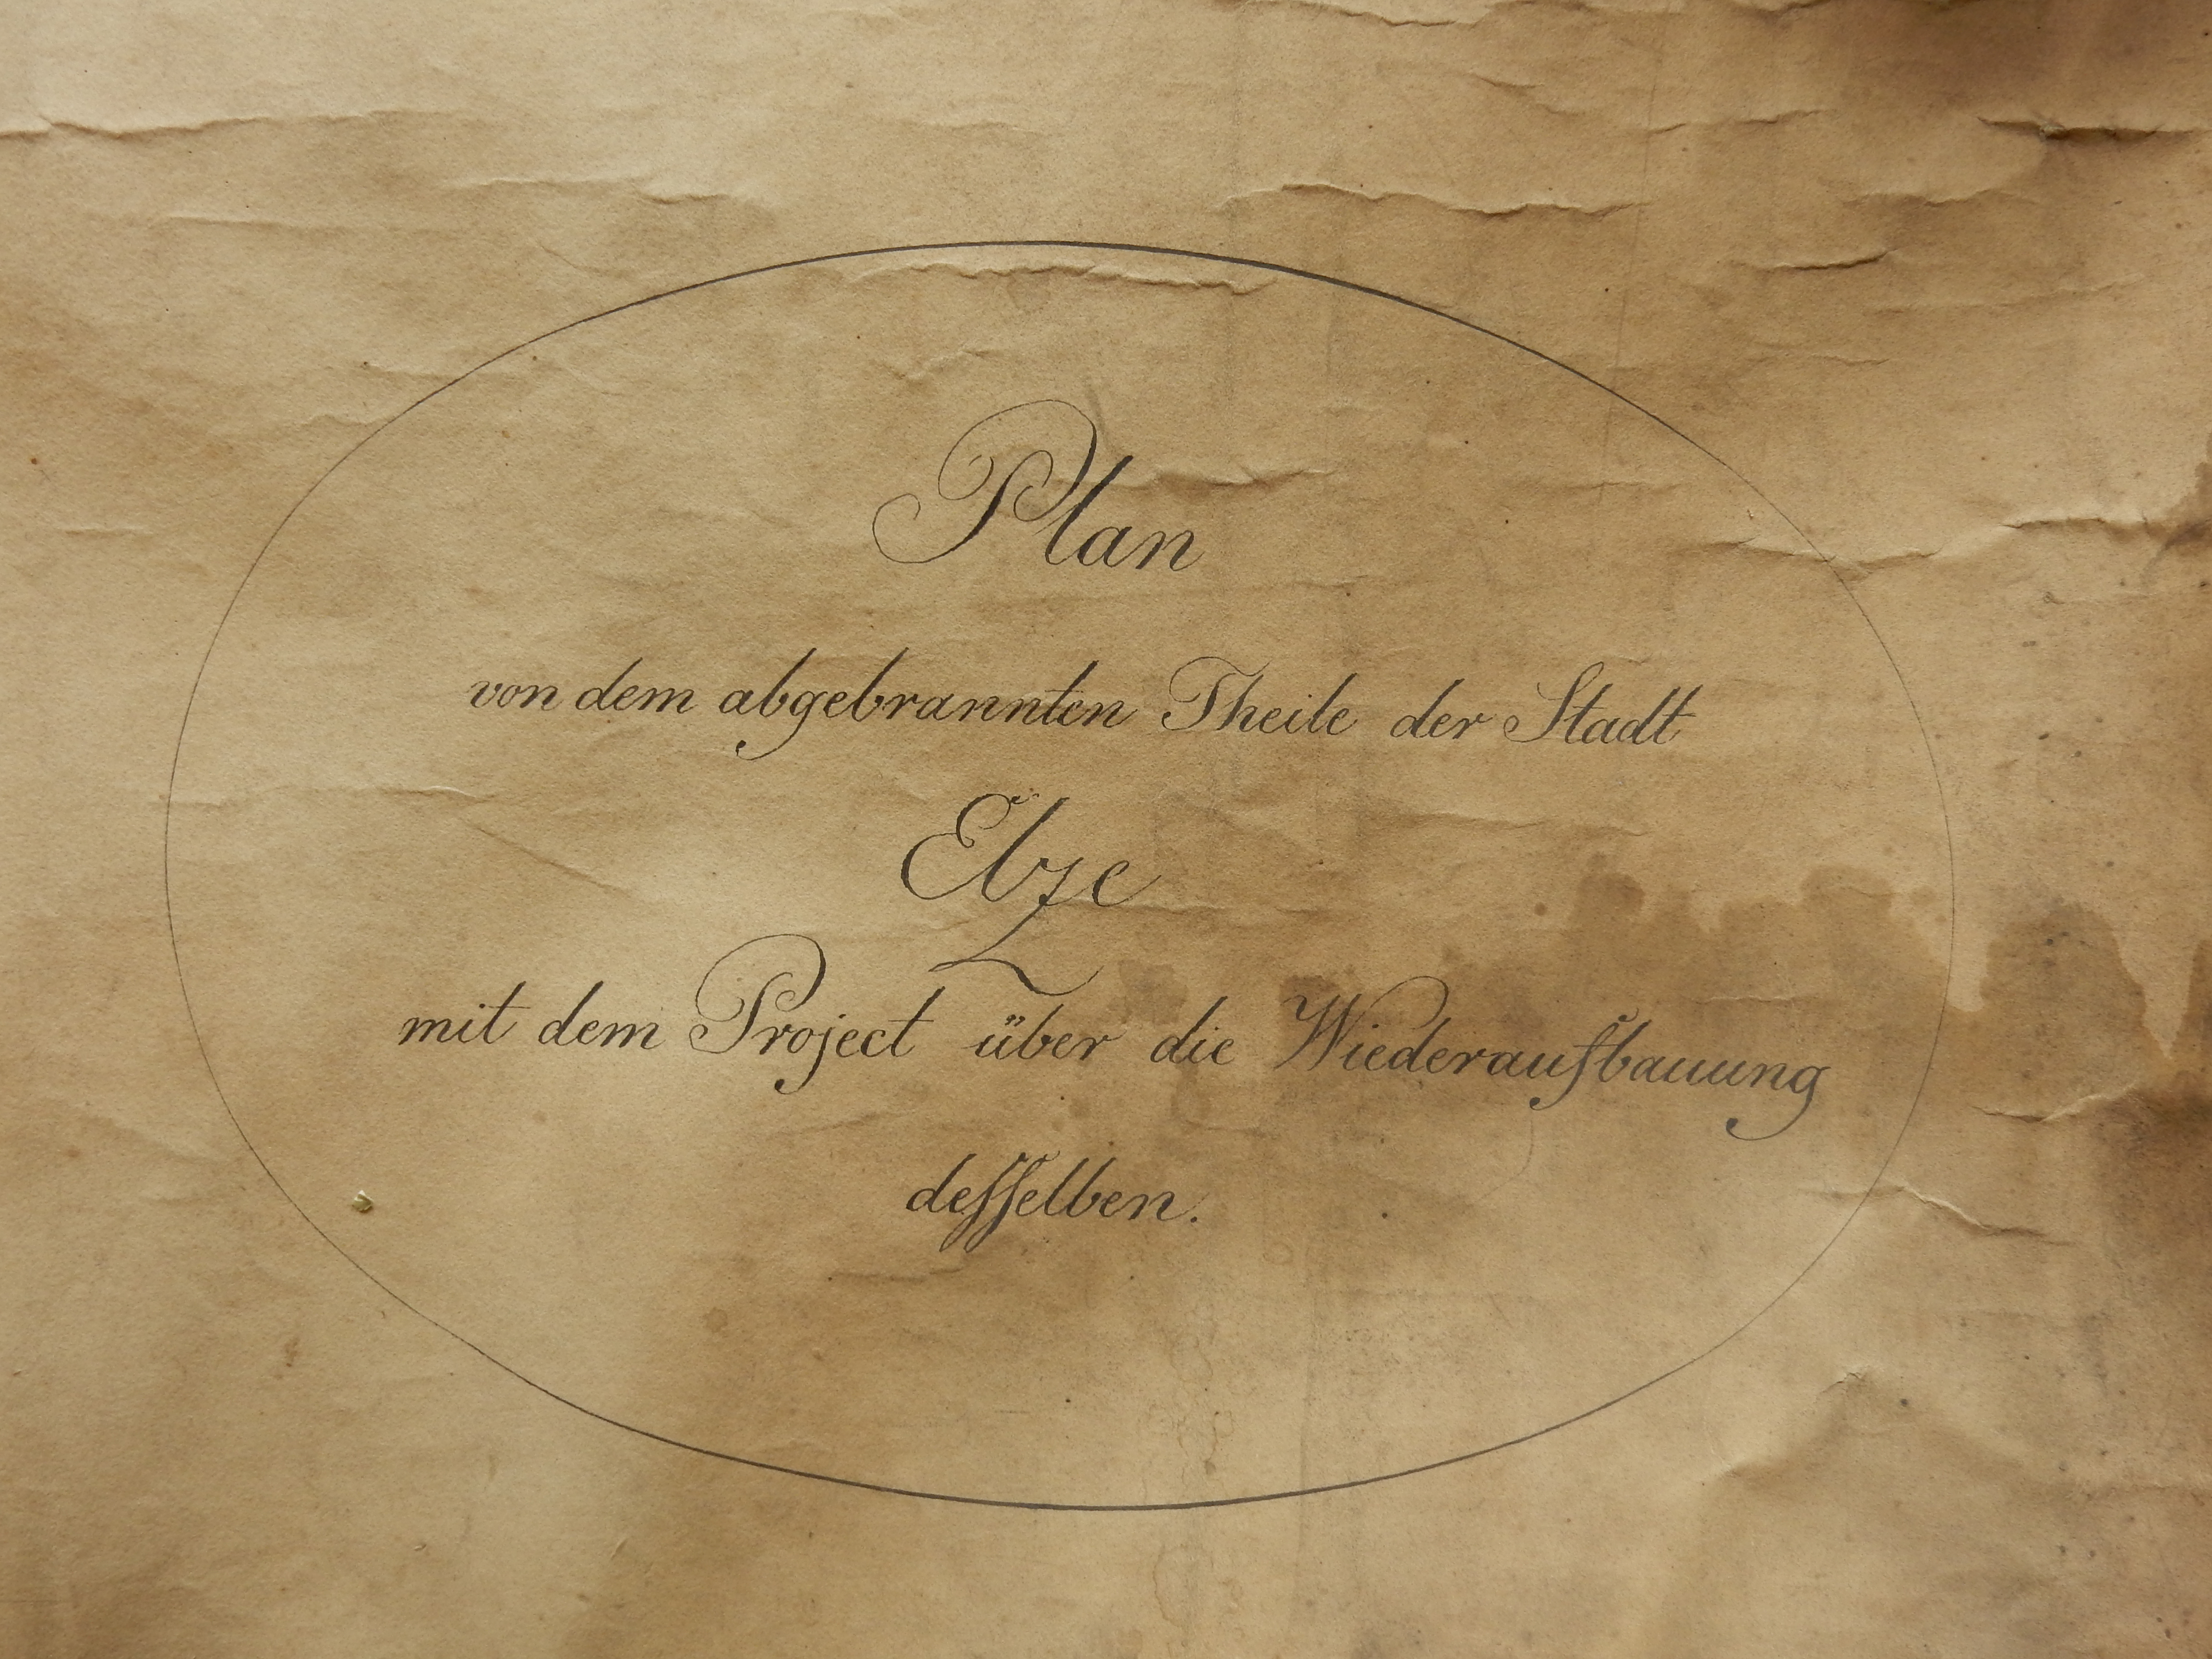 Plan
von dem abgebrannten Theile der Stadt
Elze
mit dem Project über die Wiederaufbauung
desſelben.